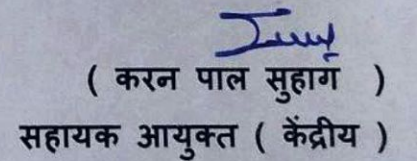 ( करन पाल सुहाग )
सहायक आयुक्त ( केंद्रीय )